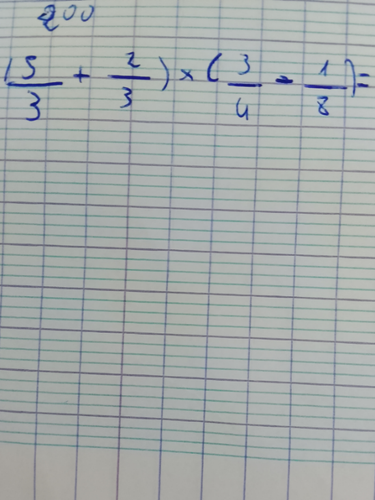 200
(5/3 + 2/3) × (3/4 - 1/8) =